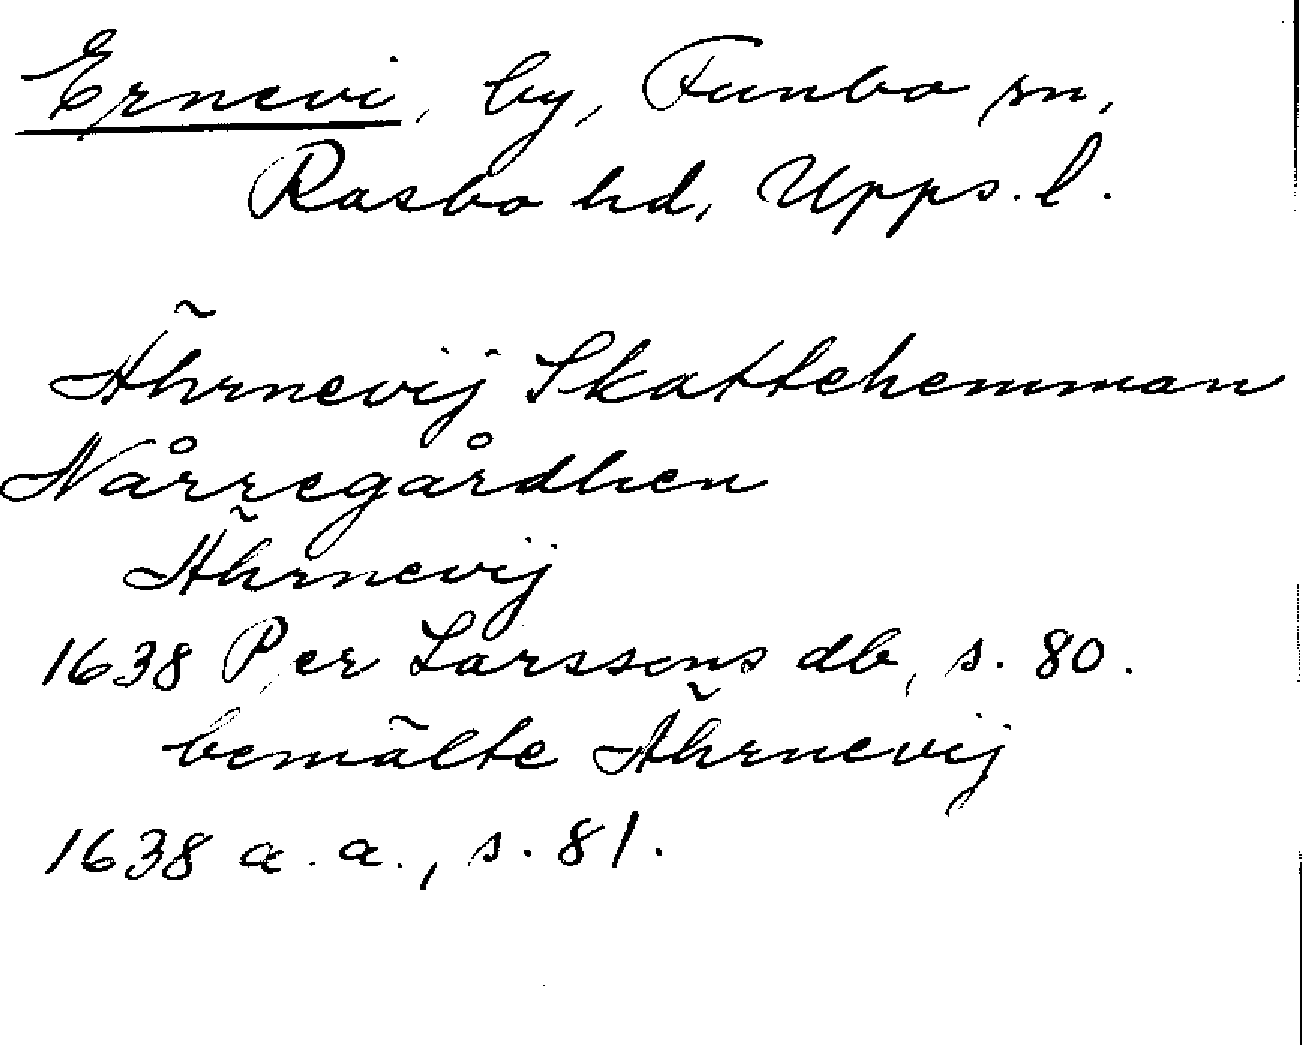 Ernevi, by, Funbo sn,
Rasbo hd, Upps. l.
Ãhrnevij Skattehemman
Nårregårdhen
Ãhrnevij
1638 Per Larssons db, s. 80.
bemãlte Ãhrnevij
1638 a. a., s. 81.